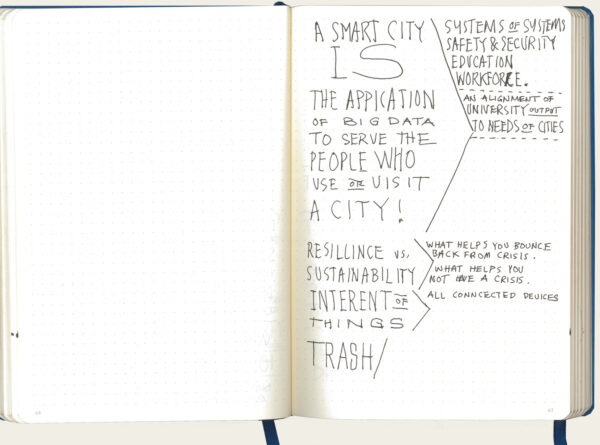 A SMART CITY
IS
THE APPICATION
OF BIG DATA
TO SERVE THE
PEOPLE WHO
USE OR VISIT
A CITY!
SYSTEMS OF SYSTEMS
SAFETY & SECURITY
EDUCATION
WORKFORCE.
AN ALIGNMENT OF
UNIVERSITY OUTPUT
TO NEEDS OF CITIES
RESILLINCE VS.
SUSTAINABILITY
WHAT HELPS YOU BOUNCE
BACK FROM CRISIS.
WHAT HELPS YOU
NOT HAVE A CRISIS.
INTERENT OF
THINGS
ALL CONNCECTED DEVICES
TRASH/